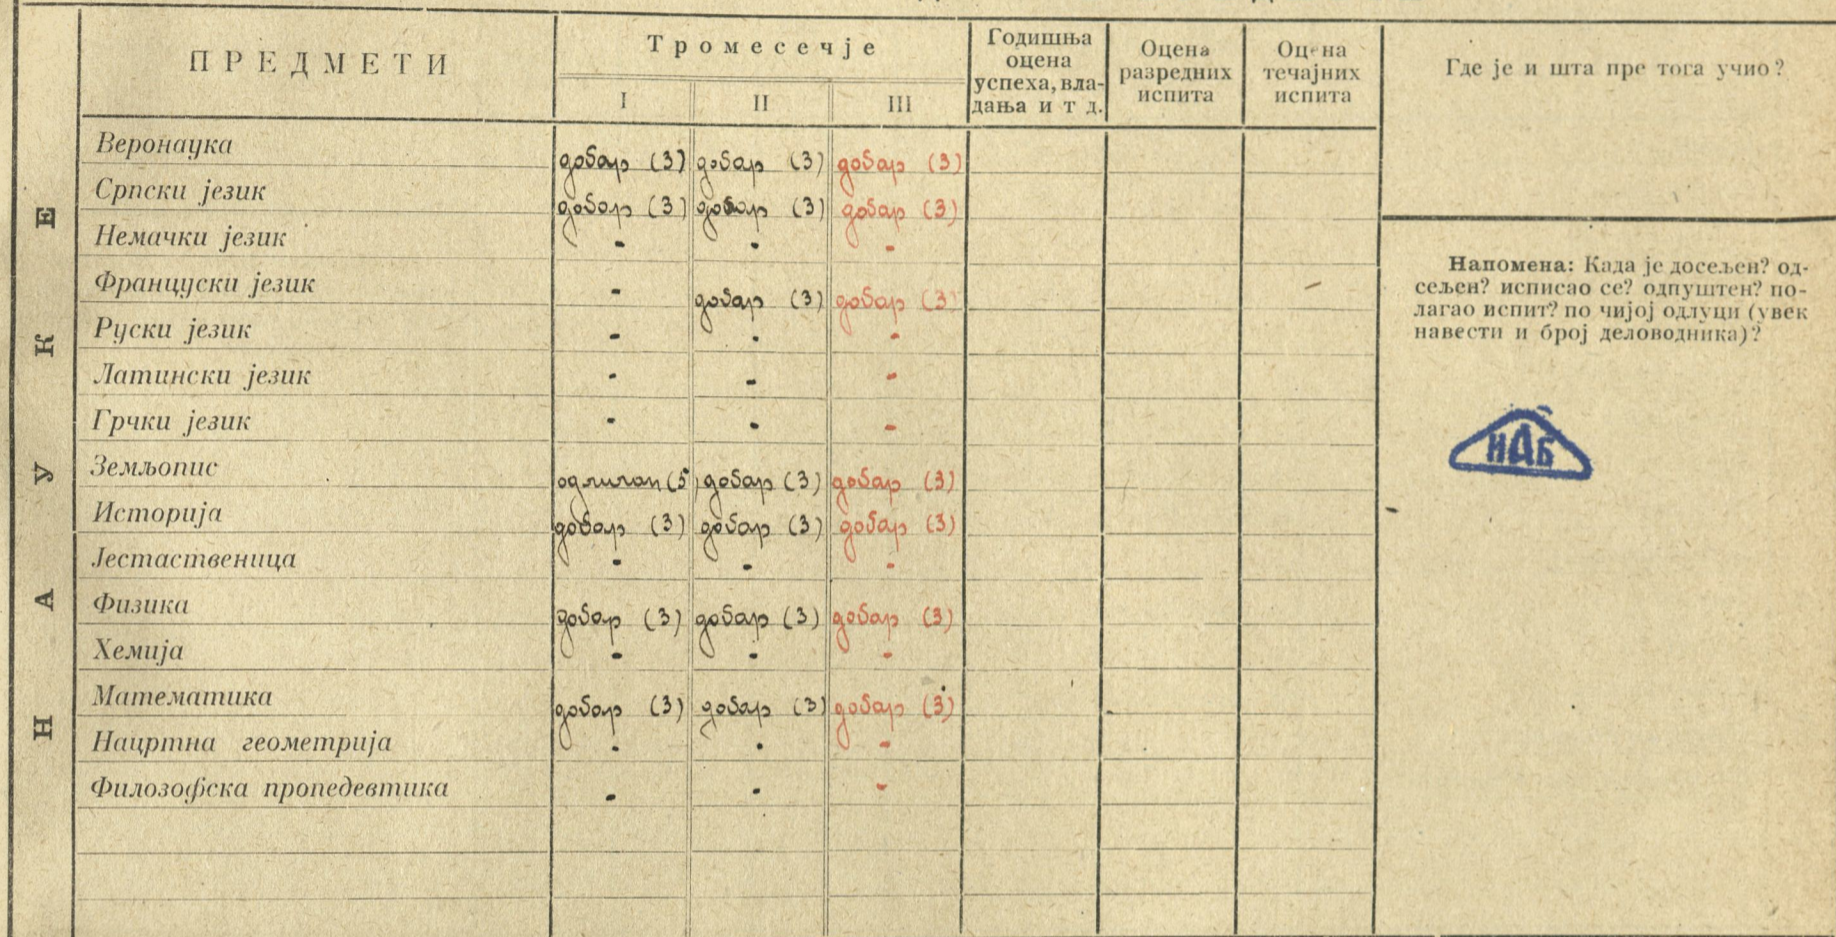 ПРЕДМЕТИ
Тромесечје
I II III
Годишња оцена успеха, вла-дања и т д.
Оцена разредних испита
Оцена течајних испита
Где је и шта пре тога учио?
НАУКЕ
Веронаука добар (3) добар (3) добар (3)
Српски језик добар (3) добар (3) добар (3)
Немачки језик - - -
Француски језик - добар (3) добар (3)
Руски језик - - -
Латински језик - - -
Грчки језик - - -
Земљопис одличан (5) добар (3) добар (3)
Историја добар (3) добар (3) добар (3)
Јестаственица - - -
Физика добар (3) добар (3) добар (3)
Хемија - - -
Математика добар (3) добар (3) добар (3)
Нацртна геометрија - - -
Филозофска пропедевтика - - -
Напомена: Када је досељен? од-
сељен? исписао се? одпуштен? по-
лагао испит? по чијој одлуци (увек
навести и број деловодника)?
НАБ